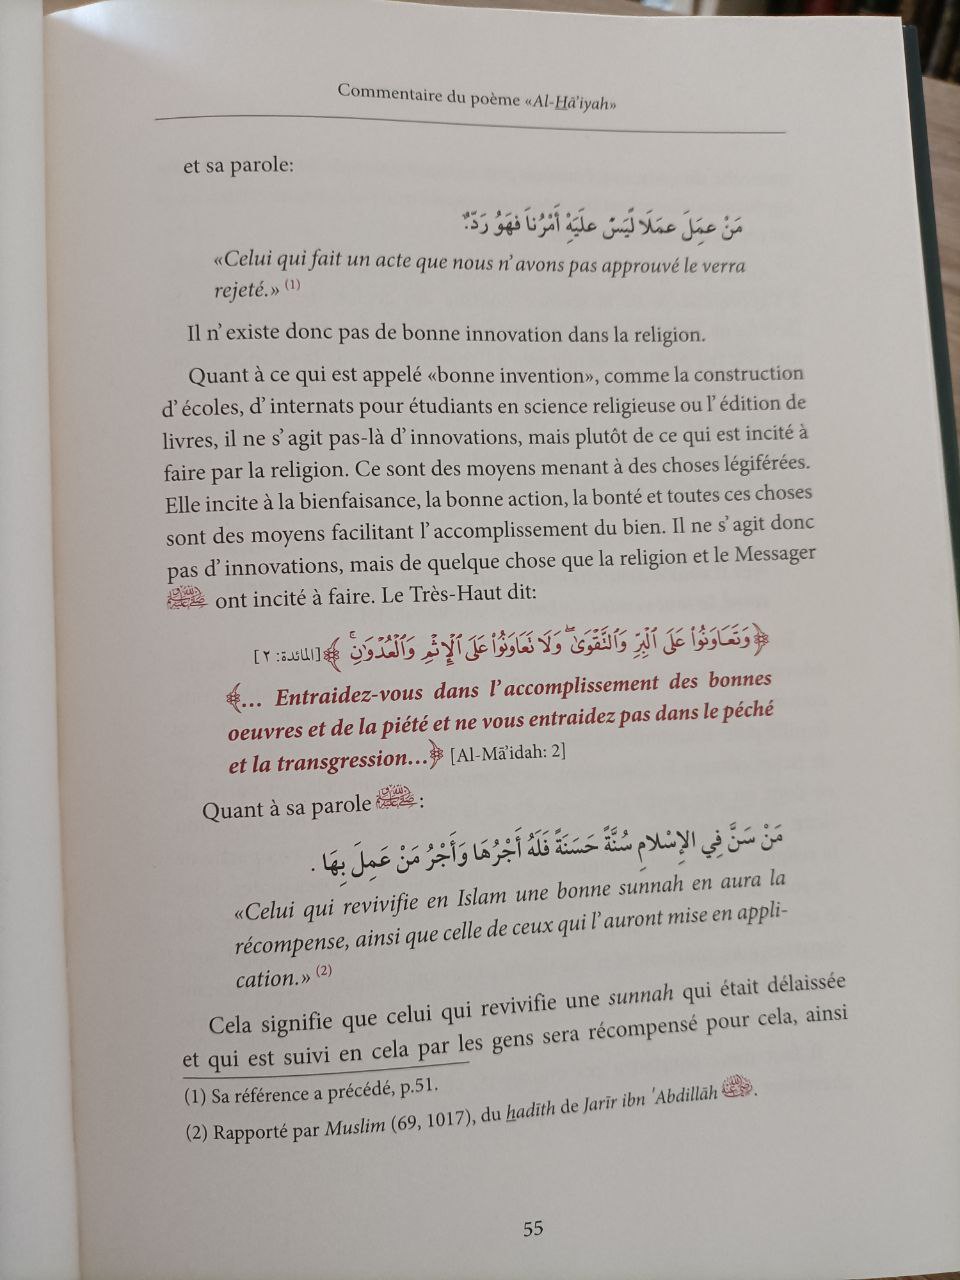 Commentaire du poème «Al-Hā'iyah»
et sa parole:
مَنْ عَمِلَ عَمَلًا لَيْسَ عَلَيْهِ أَمْرُنَا فَهُوَ رَدٌّ.
«Celui qui fait un acte que nous n'avons pas approuvé le verra
rejeté.» (1)
Il n'existe donc pas de bonne innovation dans la religion.
Quant à ce qui est appelé «bonne invention», comme la construction
d'écoles, d'internats pour étudiants en science religieuse ou l'édition de
livres, il ne s'agit pas-là d'innovations, mais plutôt de ce qui est incité à
faire par la religion. Ce sont des moyens menant à des choses légiférées.
Elle incite à la bienfaisance, la bonne action, la bonté et toutes ces choses
sont des moyens facilitant l'accomplissement du bien. Il ne s'agit donc
pas d'innovations, mais de quelque chose que la religion et le Messager
ﷺ ont incité à faire. Le Très-Haut dit:
﴿وَتَعَاوَنُوا۟ عَلَى ٱلْبِرِّ وَٱلتَّقْوَىٰ ۖ وَلَا تَعَاوَنُوا۟ عَلَى ٱلْإِثْمِ وَٱلْعُدْوَٰنِ ۚ﴾ [المائدة: ٢]
﴾... Entraidez-vous dans l'accomplissement des bonnes
oeuvres et de la piété et ne vous entraidez pas dans le péché
et la transgression...﴿ [Al-Mā'idah: 2]
Quant à sa parole ﷺ:
مَنْ سَنَّ فِي الإِسْلامِ سُنَّةً حَسَنَةً فَلَهُ أَجْرُهَا وَأَجْرُ مَنْ عَمِلَ بِهَا .
«Celui qui revivifie en Islam une bonne sunnah en aura la
récompense, ainsi que celle de ceux qui l'auront mise en appli-
cation.» (2)
Cela signifie que celui qui revivifie une sunnah qui était délaissée
et qui est suivi en cela par les gens sera récompensé pour cela, ainsi
(1) Sa référence a précédé, p.51.
(2) Rapporté par Muslim (69, 1017), du hadīth de Jarīr ibn 'Abdillāh.
55